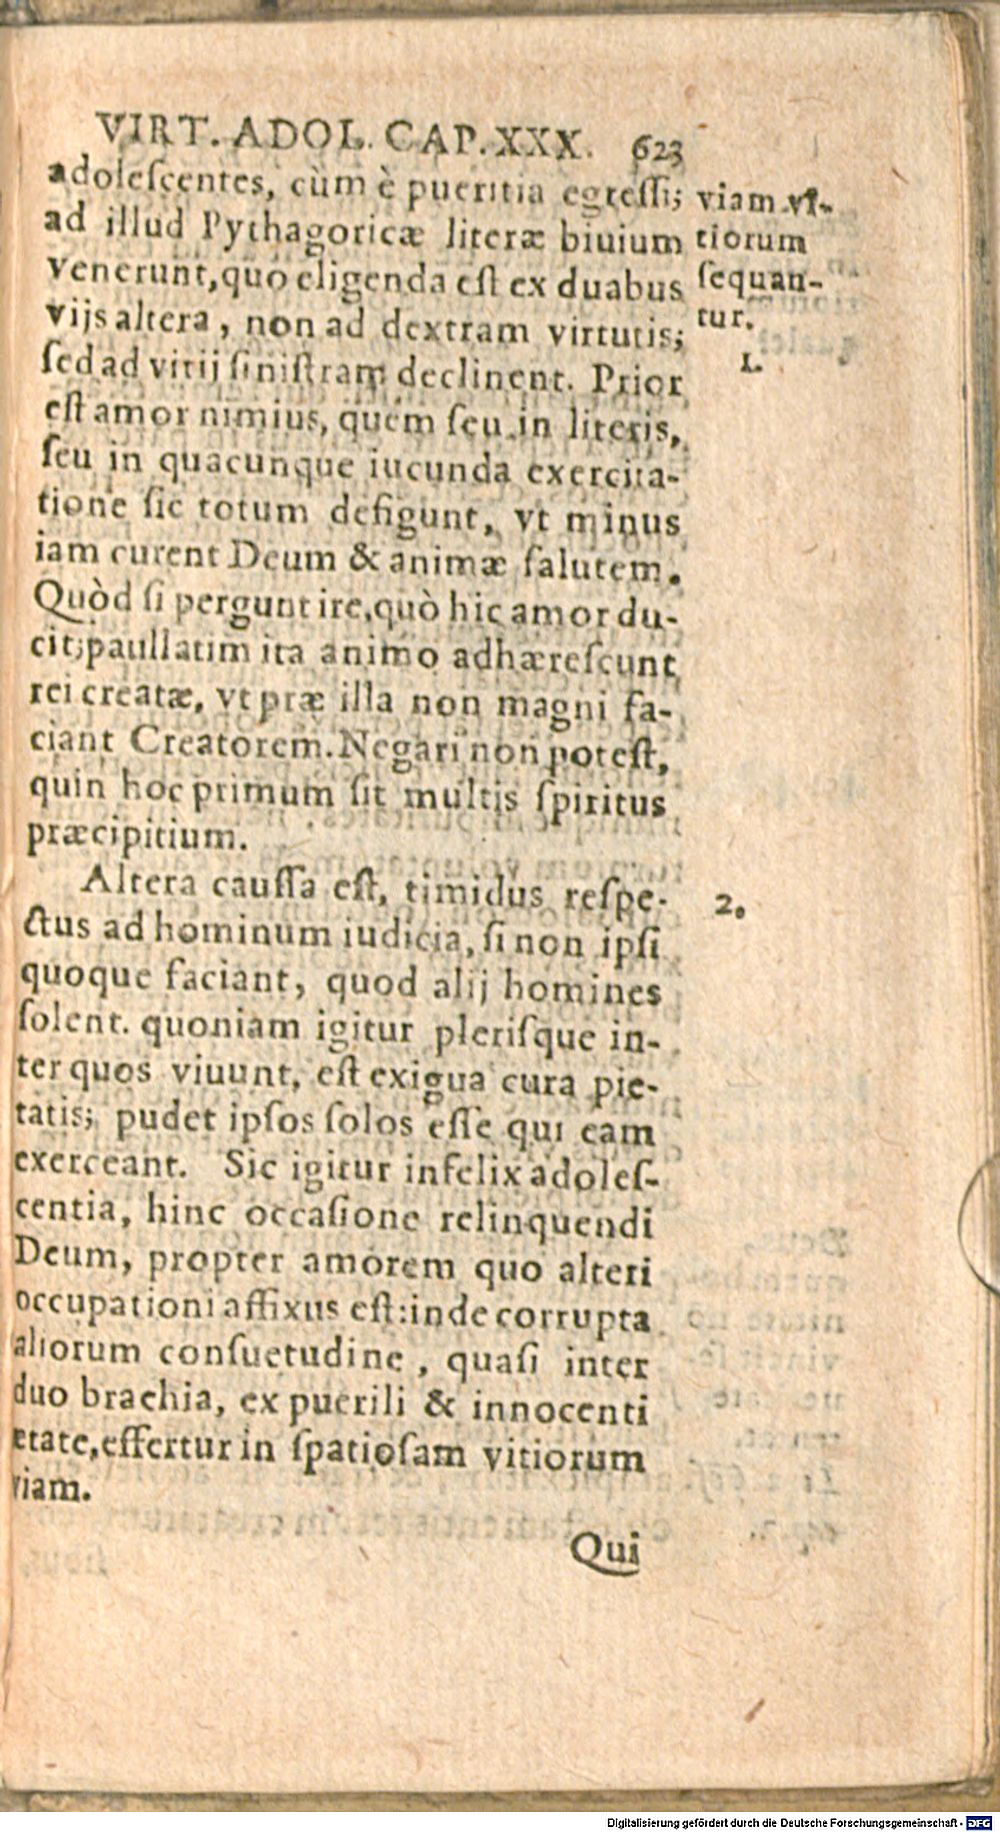 VIRT. ADOL. CAP. XXX. 623
adoleſcentes, cùm è pueritia egreſſi;
ad illud Pythagoricæ literæ biuium
venerunt, quo eligenda eſt ex duabus
vijs altera, non ad dextram virtutis;
ſed ad vitij ſiniſtram declinent. Prior
eſt amor nimius, quem ſeu in literis,
ſeu in quacunque iucunda exercita-
tione ſic totum defigunt, vt minus
iam curent Deum & animæ ſalutem.
Quòd ſi pergunt ire, quò hic amor du-
cit; paullatim ita animo adhæreſcunt
rei creatæ, vt præ illa non magni fa-
ciant Creatorem. Negari non poteſt,
quin hoc primum ſit multis ſpiritus
præcipitium.
Altera cauſſa eſt, timidus reſpe-
ctus ad hominum iudicia, ſi non ipſi
quoque faciant, quod alij homines
ſolent. quoniam igitur pleriſque in-
ter quos viuunt, eſt exigua cura pie-
tatis; pudet ipſos ſolos eſſe qui eam
exerceant. Sic igitur infelix adoleſ-
centia, hinc occaſione relinquendi
Deum, propter amorem quo alteri
occupationi affixus eſt: inde corrupta
aliorum conſuetudine, quaſi inter
duo brachia, ex puerili & innocenti
ætate, effertur in ſpatioſam vitiorum
viam.
Qui
viam vi-
tiorum
ſequan-
tur.
1.
2.
Digitalisierung gefördert durch die Deutsche Forschungsgemeinschaft - DFG